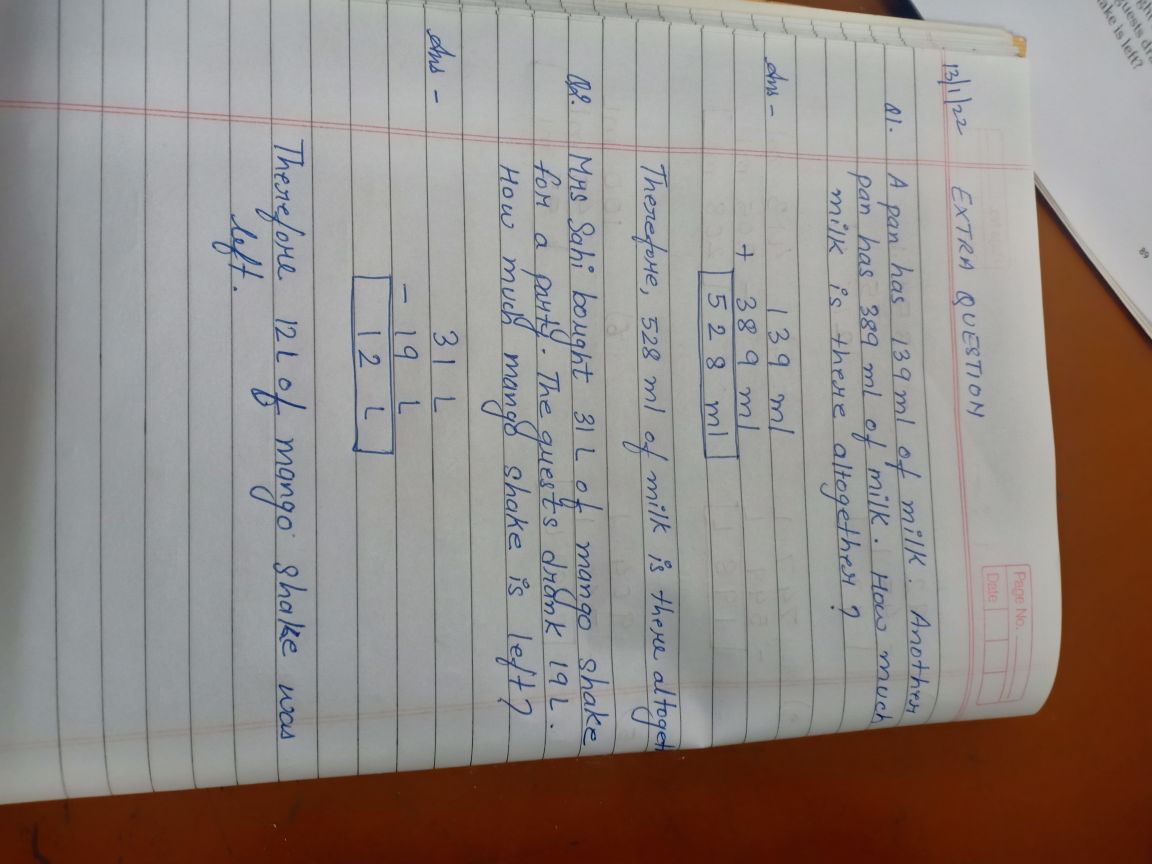 Page No.
Date
13/1/22 EXTRA QUESTION
Q1. A pan has 139 ml of milk. Another
pan has 389 ml of milk. How much
milk is there altogether?
Ans - 139 ml
+ 389 ml
528 ml
Therefore, 528 ml of milk is there altoget
Q2. Mrs Sahi bought 31 L of mango shake
for a party. The guests drank 19 L.
How much mango shake is left?
Ans - 31 L
- 19 L
12 L
Therefore 12 L of mango shake was
left.
guests dr
ake is left?